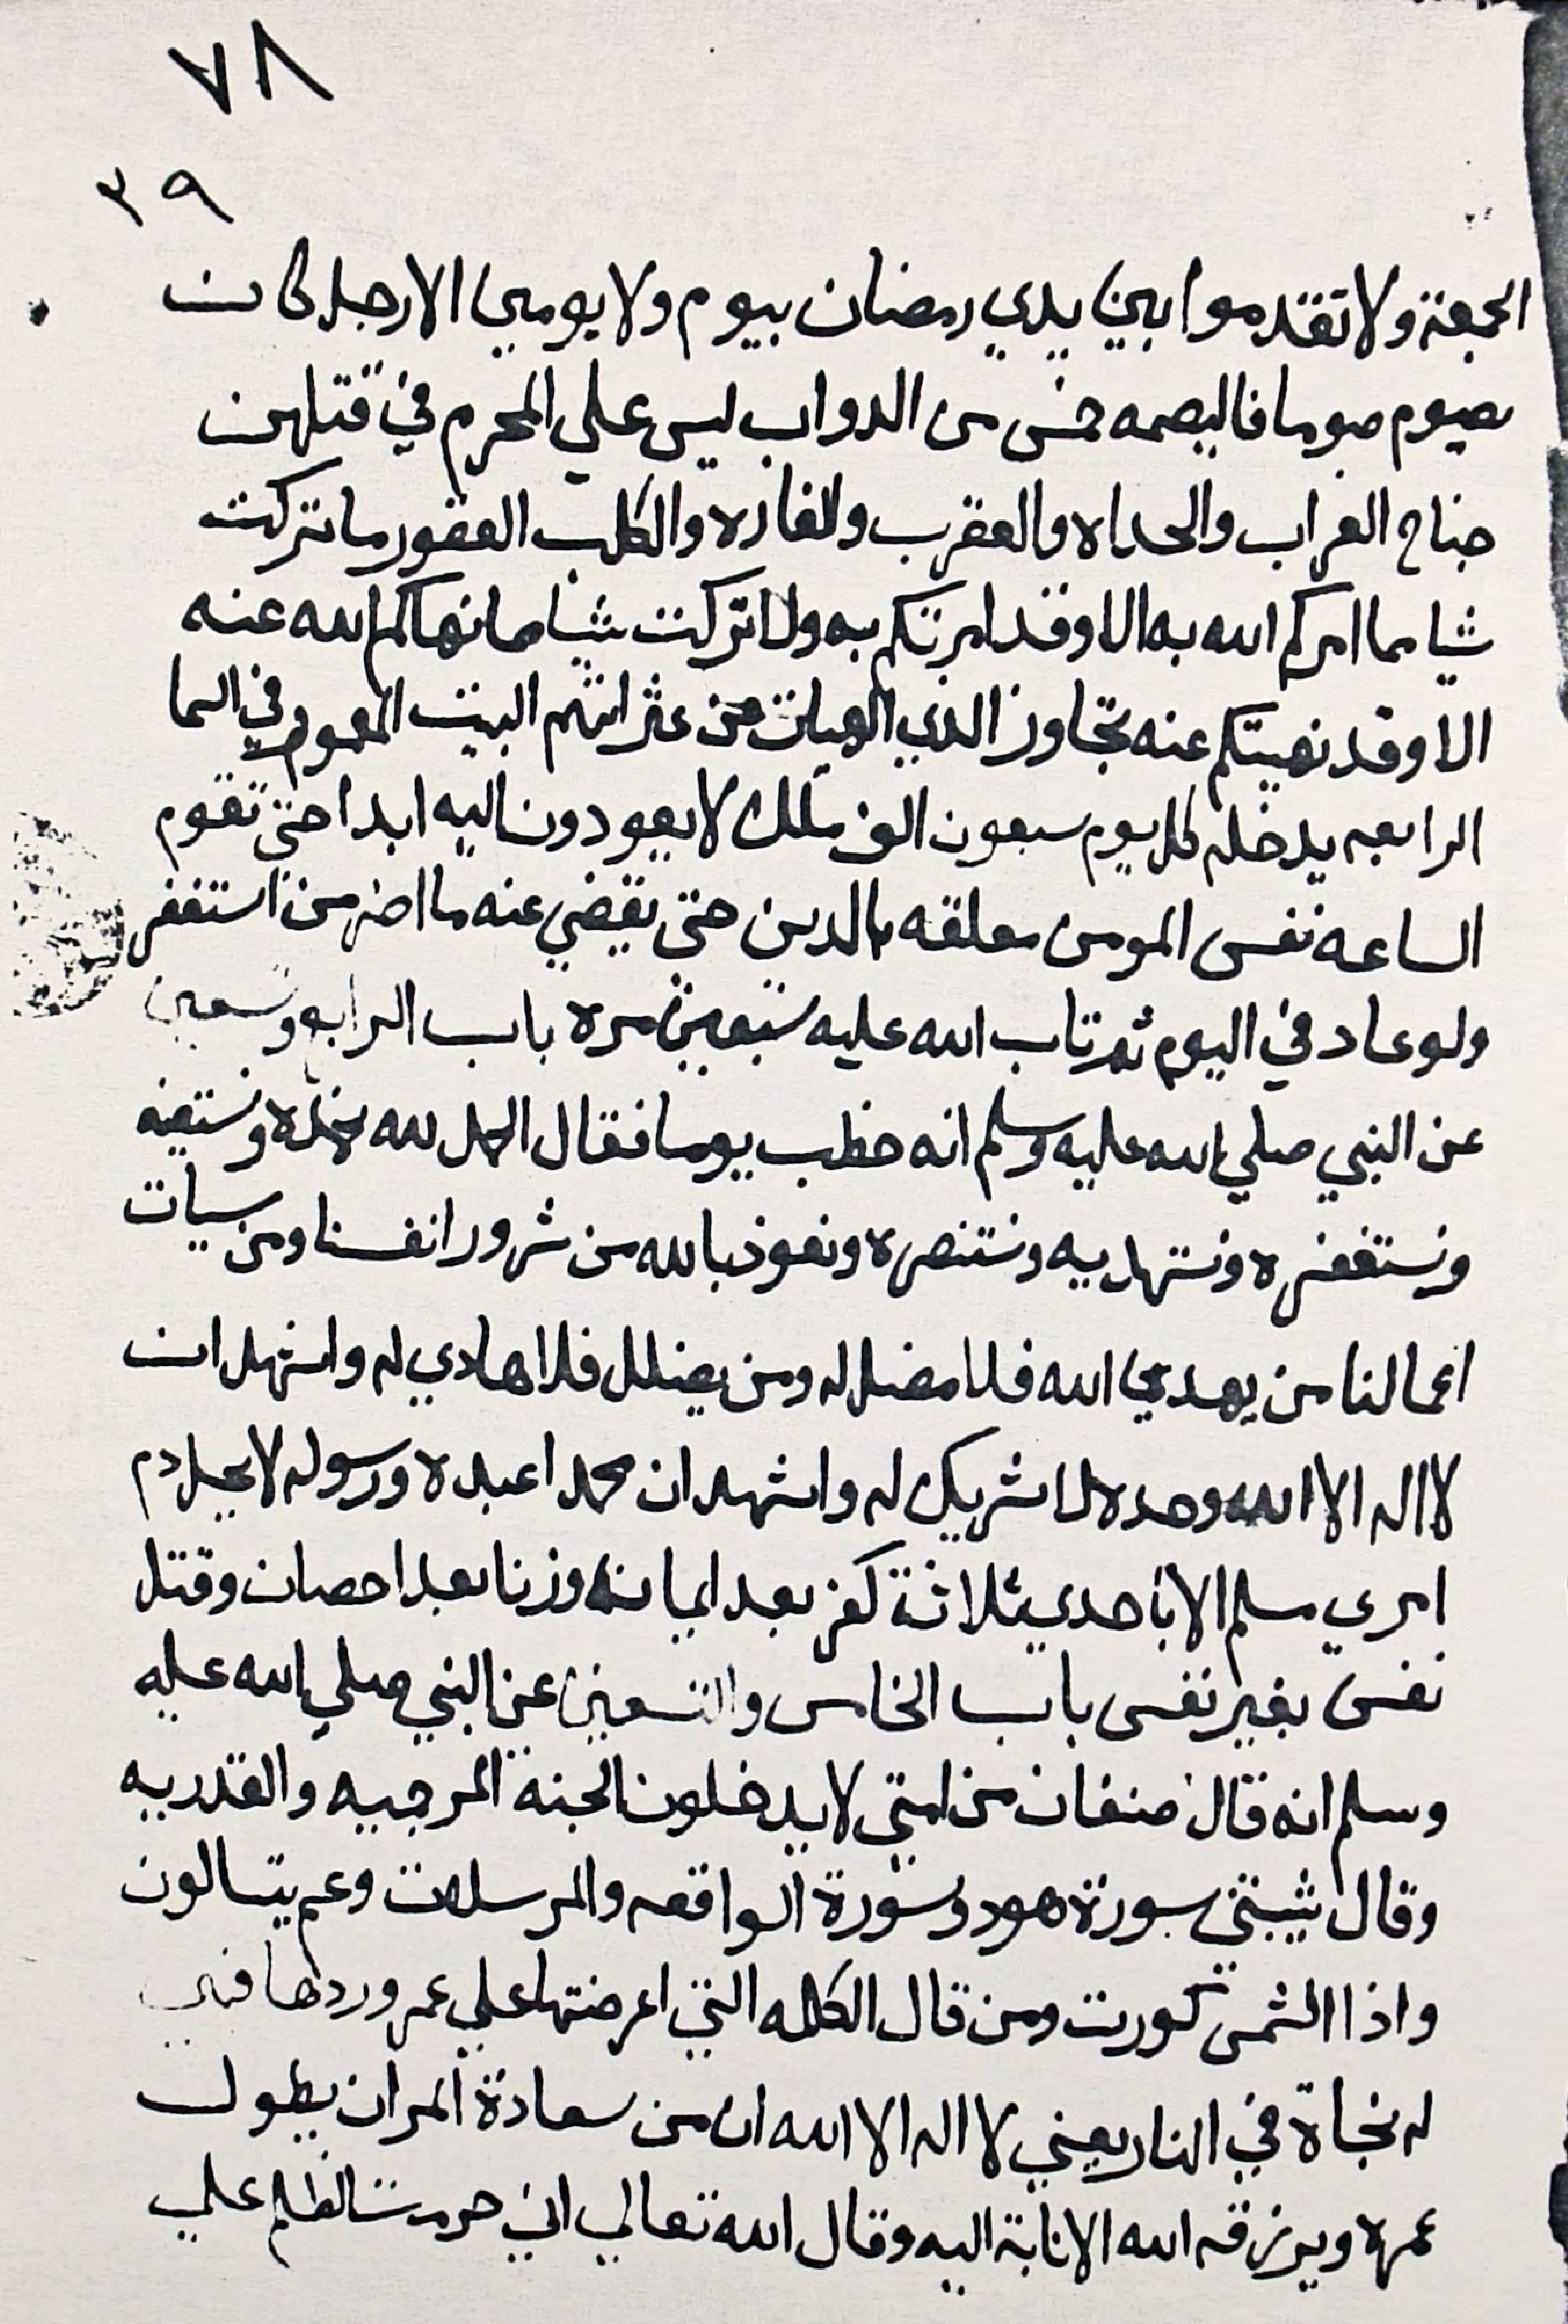 ٧٨
٣٩
الجمعة ولا تقدموا بين يدي رمضان بيوم ولا يومين الا رجل كان
يصوم صوما فاليصمه خمس من الدواب ليس علي المحرم في قتلهن
جناح الغراب والحداه والعقرب والفاره والكلب العقور ما تركت
شيا مما امركم الله به الا وقد امرتكم به ولا تركت شيا مما نهاكم الله عنه
الا وقد نهيتكم عنه تجاوز الذوي الهيات من عثراتهم البيت المعمور في السما
الرابعه يدخله كل يوم سبعون الف ملك لا يعودون اليه ابدا حتى تقوم
الساعه نفس المومن معلقه بالدين حتى يقضي عنه ما اصر من استغفر
ولو عاد في اليوم ثم تاب الله عليه سبعين مره باب الرابع وتسعين
عن النبي صلي الله عليه وسلم انه خطب يوما فقال الحمد لله نحمده ونستعينه
ونستغفره ونستهديه ونستنصره ونعوذ بالله من شرور انفسنا ومن سيات
اعمالنا من يهدي الله فلا مضل له ومن يضلل فلا هادي له واشهد ان
لا اله الا الله وحده لا شريك له واشهد ان محمدا عبده ورسوله لا يحل دم
امري مسلم الا باحدي ثلاثة كفر بعد ايمانه وزنا بعد احصان وقتل
نفس بغير نفس باب الخامس والتسعين عن النبي صلي الله عليه
وسلم انه قال صنفان من امتي لا يدخلون الجنة المرجيه والقدريه
وقال شيبتني سورة هود وسورة الواقعه والمرسلات وعم يتسالون
واذا الشمس كورت ومن قال الكلمه التي اعرضتها علي عمي وردها فهي
له نجاة في النار يعني لا اله الا الله ان من سعادة المر ان يطول
عمره ويرزقه الله الانابة اليه وقال الله تعالي اني حرمت الظلم علي